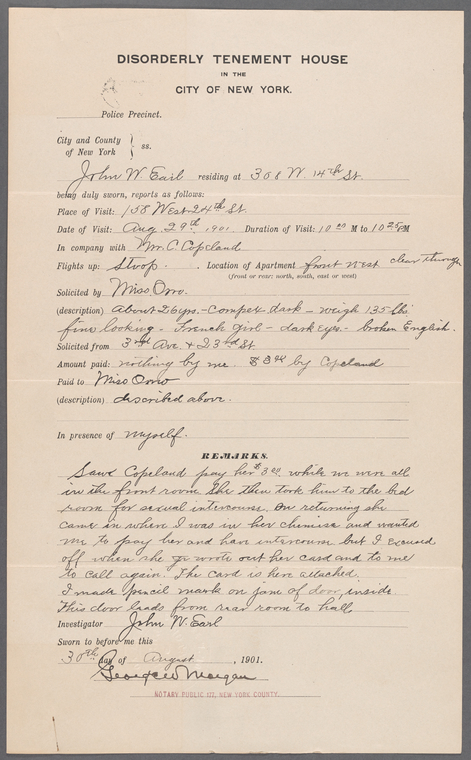 DISORDERLY TENEMENT HOUSE
IN THE
CITY OF NEW YORK.
Police Precinct.
City and County
of New York } ss.
John W. Earl residing at 308 W. 14th St.
being duly sworn, reports as follows:
Place of Visit: 158 West 24th St.
Date of Visit: Aug 29th, 1901 Duration of Visit: 10 00 M to 10 25 PM
In company with Wm. C Copeland
Flights up: Stoop. Location of Apartment front West clear through
(front or rear; north, south, east or west)
Solicited by Miss Orro.
(description) About 26 yrs. - Compex dark - weigh 135 lbs
fine looking - French girl - dark eyes - broken English.
Solicited from 3rd Ave. & 23rd St
Amount paid: nothing by me $3.00 by Copeland
Paid to Miss Orro
(description) described above.
In presence of myself.
REMARKS.
Saw Copeland pay her $3.00 while we were all
in the front room She then took him to the bed
room for sexual intercourse. On returning she
came in where I was in her chemise and wanted
me to pay her and have intercourse but I excused
off when she wrote out her card and to me
to call again. The card is here attached.
I made pencil mark on jam of door inside.
This door leads from rear room to hall.
Investigator John W. Earl
Sworn to before me this
30th day of August, 1901.
George W Morgan
NOTARY PUBLIC NEW YORK COUNTY.